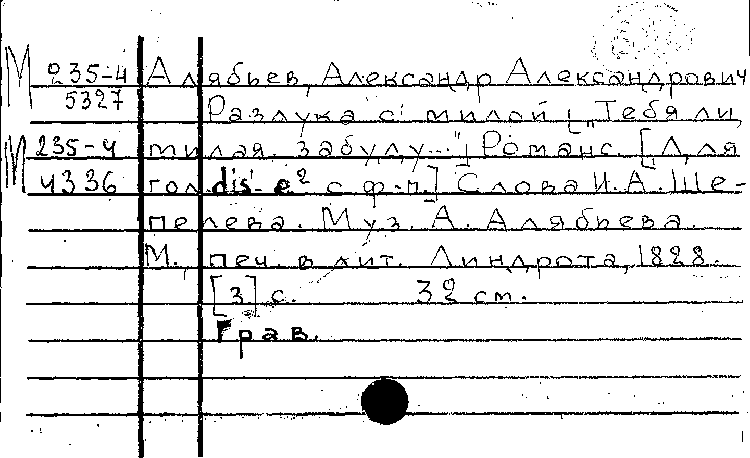 М 235-4 Алябьев, Александр Александрович
5327 Разлука с милой [„Тебя ли,
М 235-4 милая, забуду..."] Романс. [Для
4336 гол. dis-e² с ф.-п.] Слова И. А. Ше-
пелева. Муз. А. Алябьева.
М., печ. в лит. Линдрота, 1828.
[3] с. 32 см.
Грав.